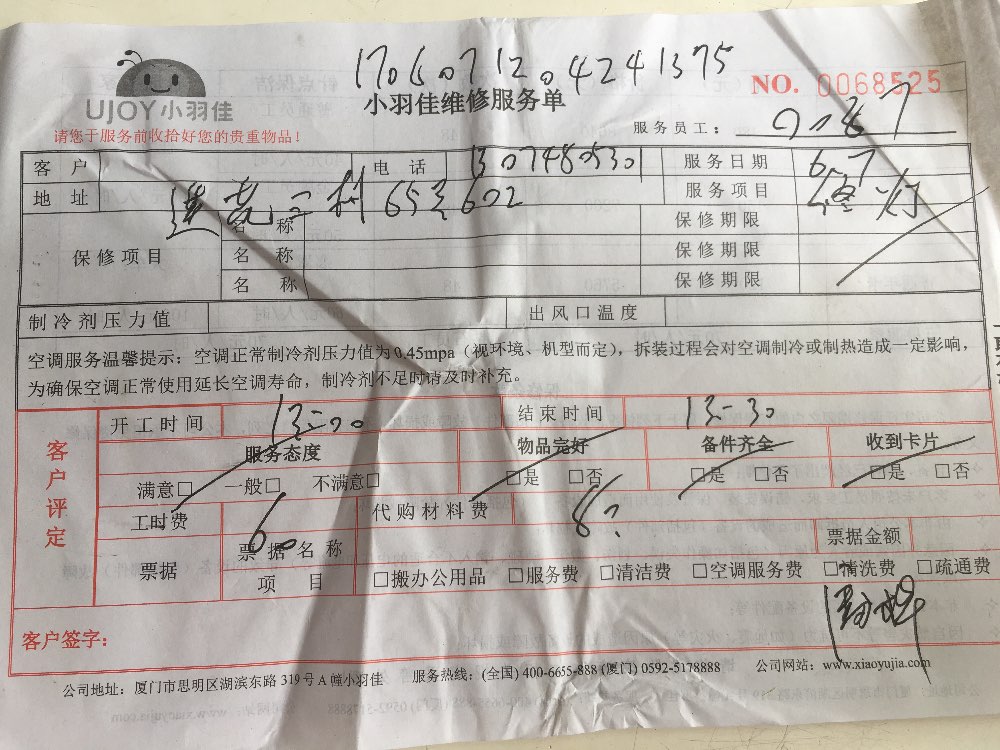 1706071204241375
UJOY小羽佳
小羽佳维修服务单
NO. 0068525
请您于服务前收拾好您的贵重物品！
服务员工：
客 户 电 话 服务日期 6.7
地 址 莲花二村 65号602 服务项目 修灯
保修项目 名 称 保修期限
名 称 保修期限
名 称 保修期限
制冷剂压力值 出风口温度
空调服务温馨提示：空调正常制冷剂压力值为0.45mpa（视环境、机型而定），拆装过程会对空调制冷或制热造成一定影响，
为确保空调正常使用延长空调寿命，制冷剂不足时请及时补充。
客户评定
开工时间 13:00 结束时间 13-30
服务态度 物品完好 备件齐全 收到卡片
满意□ 一般□ 不满意□ □是 □否 □是 □否 □是 □否
工时费 60 代购材料费
票据 票据名称 票据金额
项 目 □搬办公用品 □服务费 □清洁费 □空调服务费 □清洗费 □疏通费
客户签字：
公司地址：厦门市思明区湖滨东路 319 号 A 幢小羽佳 服务热线：(全国) 400-6655-888 (厦门) 0592-5178888 公司网站：www.xiaoyujia.com